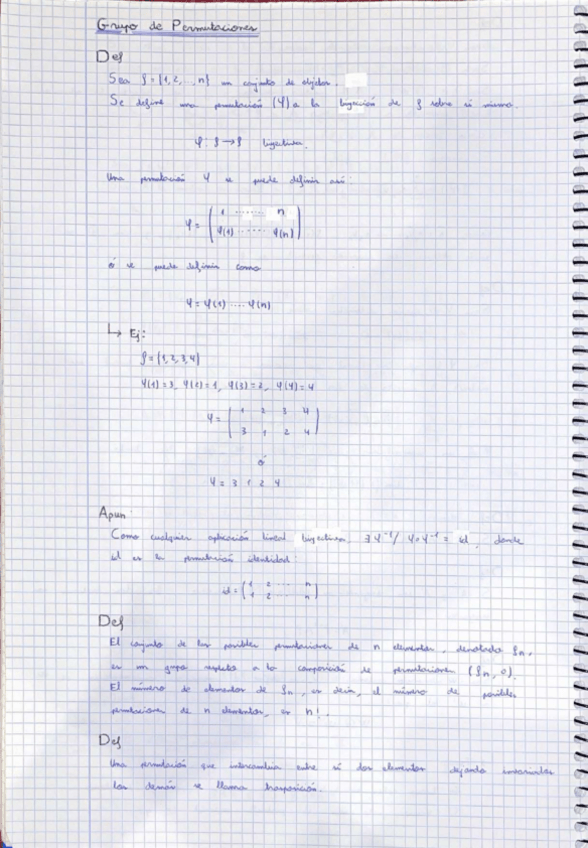 Grupo de Permutaciones
Def
Sea S = {1,2, .., n} un conjunto de objetos.
Se define una permutación (φ) a la biyección de S sobre si mismo.
φ: S → S biyectiva.
Una permutación φ se puede definir así:
φ = ( 1 ........ n
φ(1) ...... φ(n) )
ó se puede definir como
φ = φ(1) .... φ(n)
↳ Ej:
S = {1,2,3,4}
φ(1)=3, φ(2)=1, φ(3)=2, φ(4)=4
φ = ( 1 2 3 4
3 1 2 4 )
ó
φ = 3 1 2 4
Apun
Como cualquier aplicación lineal biyectiva, ∃ φ⁻¹ / φ∘φ⁻¹ = id, donde
id es la permutación identidad:
id = ( 1 2 ... n
1 2 ... n )
Def
El conjunto de las posibles permutaciones de n elementos, denotado Sn,
es un grupo respeto a la composición de permutaciones (Sn, o).
El número de elementos de Sn, es decir, el número de posibles
permutaciones de n elementos, es n!.
Def
Una permutación que intercambia entre sí dos elementos dejando invariantes
los demás se llama trasposición.